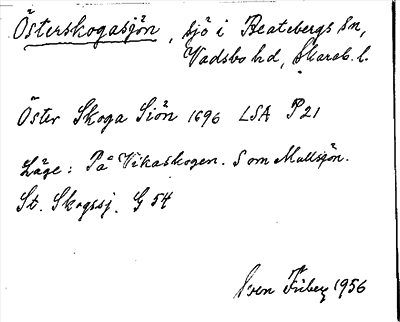 Österskogasjön, sjö i Beatebergs sn,
Vadsbo hd, Skarab. l.
Öster Skoga Siön 1696 LSA P21
Läge: På Vikaskogen. S om Mullsjön.
St. Skogssj. G 54
Sven Friberg 1956